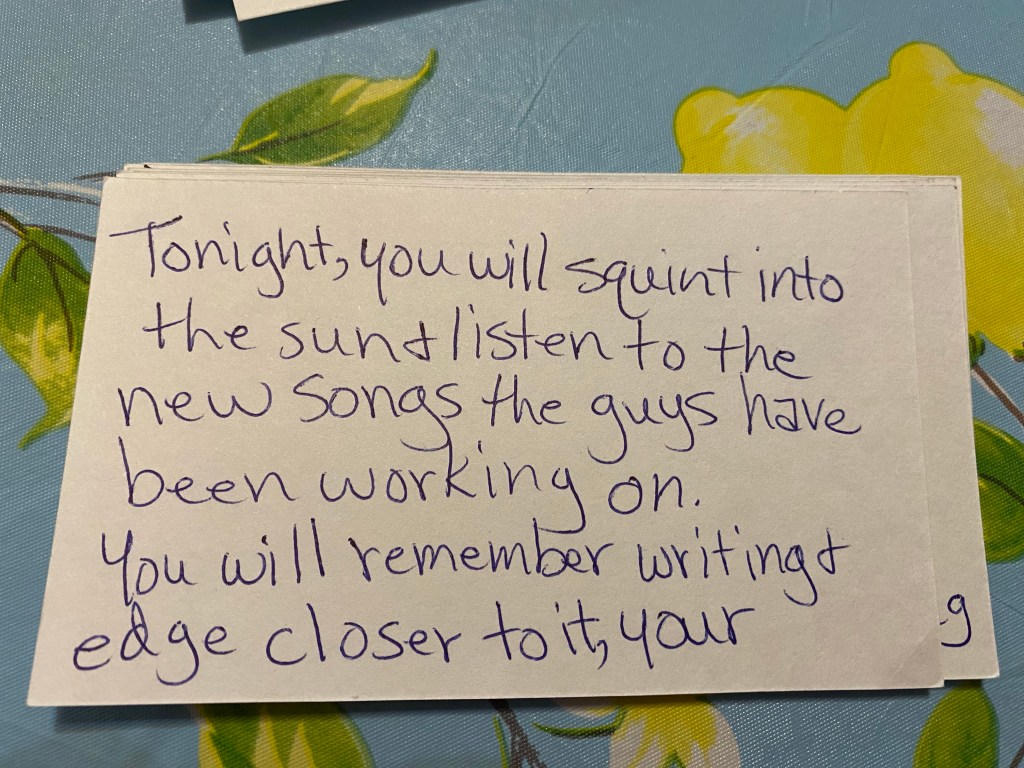 Tonight, you will squint into
the sun & listen to the
new songs the guys have
been working on.
You will remember writing &
edge closer to it, your
g